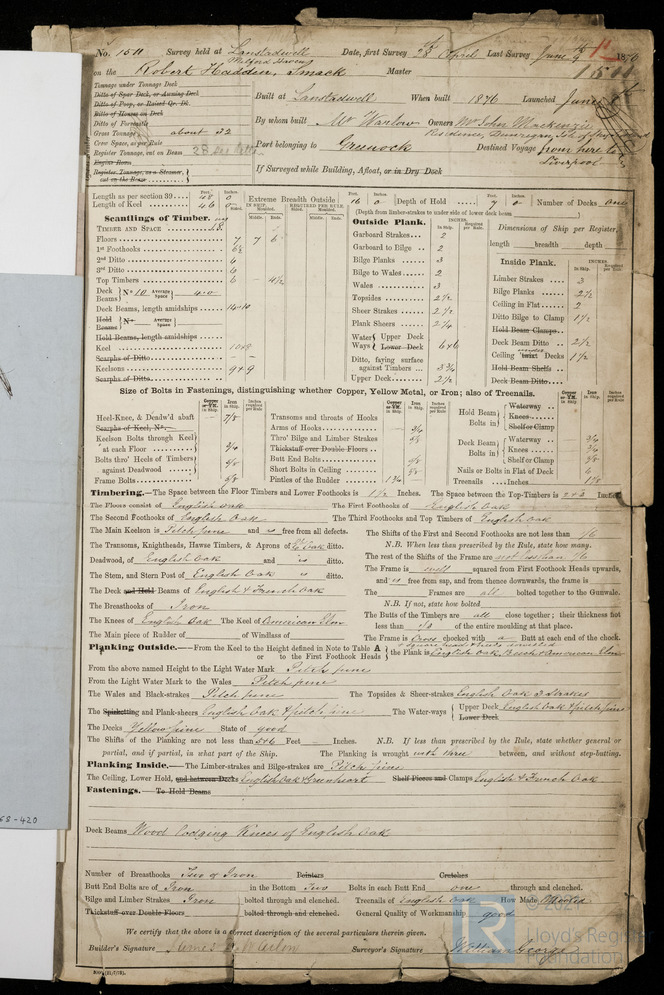 No. 1511 Survey held at Lanstadwell Date, first Survey 28 April Last Survey June 9 1876
Milford Haven
on the Robert Hadden, Smack Master
Tonnage under Tonnage Deck
Ditto of Spar Deck, or Awning Deck
Ditto of Poop, or Raised Qr. Dk.
Ditto of Houses on Deck
Ditto of Forecastle
Gross Tonnage about 32
Crew Space, as per Rule
Register Tonnage, cut on Beam
Engine Room
Register Tonnage, as a Steamer, cut on the Beam
Built at Lanstadwell When built 1876 Launched June
By whom built Mr Warlow Owners Mr John Mackenzie
Residence,
Port belonging to Greenock Destined Voyage from here to Liverpool
If Surveyed while Building, Afloat, or in Dry Dock
Length as per section 39 Feet. Inches. Extreme Breadth Outside 16 0 Depth of Hold 7 0 Number of Decks one
Length of Keel 46 0 (Depth from limber-strakes to under side of lower deck beam)
Scantlings of Timber.
TIMBER AND SPACE
Floors 7 7 6
1st Foothooks
2nd Ditto 6
3rd Ditto 6
Top Timbers 6 4½
Deck Beams No 10 Average Space 4-0
Deck Beams, length amidships
Hold Beams No Average Space
Hold Beams, length amidships
Keel
Scarphs of Ditto
Keelsons 9+9
Scarphs of Ditto
Outside Plank.
Garboard Strakes 2
Garboard to Bilge 2
Bilge Planks 3
Bilge to Wales 2
Wales 3
Topsides 2½
Sheer Strakes 2½
Plank Sheers 2¼
Water Ways Upper Deck Lower Deck 6+6
Ditto, faying surface against Timbers
Upper Deck 2½
Dimensions of Ship per Register,
length breadth depth
Inside Plank.
Limber Strakes 3
Bilge Planks 2½
Ceiling in Flat 2
Ditto Bilge to Clamp 1½
Hold Beam Clamps
Deck Beam Ditto 2½
Ceiling 'twixt Decks 1½
Hold Beam Shelfs
Deck Beam Ditto
Size of Bolts in Fastenings, distinguishing whether Copper, Yellow Metal, or Iron; also of Treenails.
Heel-Knee, & Deadw'd abaft 7/8
Scarphs of Keel, No.
Keelson Bolts through Keel at each Floor 3/4
Bolts thro' Heels of Timbers against Deadwood
Frame Bolts 5/8
Transoms and throats of Hooks
Arms of Hooks
Thro' Bilge and Limber Strakes
Thickstuff over Double Floors
Butt End Bolts
Short Bolts in Ceiling
Pintles of the Rudder 1¾
Hold Beam Bolts in Waterway Knees Shelf or Clamp
Deck Beam Bolts in Waterway 3/4 Knees 3/4 Shelf or Clamp
Nails or Bolts in Flat of Deck
Treenails Inches 1 1/8
Timbering.—The Space between the Floor Timbers and Lower Foothooks is 1½ Inches. The Space between the Top-Timbers is 2+3 Inches
The Floors consist of English oak The First Foothooks of English Oak
The Second Foothooks of English Oak The Third Foothooks and Top Timbers of English Oak
The Main Keelson is Pitch pine and is free from all defects. The Shifts of the First and Second Foothooks are not less than /6
The Transoms, Knightheads, Hawse Timbers, & Aprons of Oak ditto. N.B. When less than prescribed by the Rule, state how many.
Deadwood, of English Oak and is ditto. The rest of the Shifts of the Frame are not less than /6
The Stem, and Stern Post of English Oak is ditto. The Frame is well squared from First Foothook Heads upwards,
and is free from sap, and from thence downwards, the frame is
The Deck and Hold Beams of English & French Oak The Frames are all bolted together to the Gunwale.
The Breasthooks of Iron N.B. If not, state how bolted
The Knees of English Oak The Keel of American Elm The Butts of the Timbers are all close together; their thickness not less than of the entire moulding at that place.
The Main piece of Rudder of of Windlass of The Frame is chocked with a Butt at each end of the chock.
Planking Outside.—From the Keel to the Height defined in Note to Table A or to the First Foothook Heads the Plank is English oak, Beech & American Elm
From the above named Height to the Light Water Mark Pitch pine
From the Light Water Mark to the Wales Pitch pine
The Wales and Black-strakes Pitch pine The Topsides & Sheer-strakes English Oak 2 Strakes
The Spirketting and Plank-sheers English Oak & pitch pine The Water-ways Upper Deck English Oak & pitch pine Lower Deck
The Decks Yellow pine State of good
The Shifts of the Planking are not less than 5+6 Feet Inches. N.B. If less than prescribed by the Rule, state whether general or
partial, and if partial, in what part of the Ship. The Planking is wrought with three between, and without step-butting.
Planking Inside.—The Limber-strakes and Bilge-strakes are Pitch pine
The Ceiling, Lower Hold, and between Decks English Oak & Greenheart Shelf Pieces and Clamps English & French Oak
Fastenings.—To Hold Beams
Deck Beams Wood lodging Knees of English Oak
Number of Breasthooks Two of Iron Pointers Crutches
Butt End Bolts are of Iron in the Bottom Two Bolts in each Butt End one through and clenched.
Bilge and Limber Strakes Iron bolted through and clenched. Treenails of English Oak How Made Mooted
Thickstuff over Double Floors bolted through and clenched. General Quality of Workmanship good
We certify that the above is a correct description of the several particulars therein given.
Builder's Signature James Warlow Surveyor's Signature William George
68-420
© 202
Lloyd's Register
Foundation